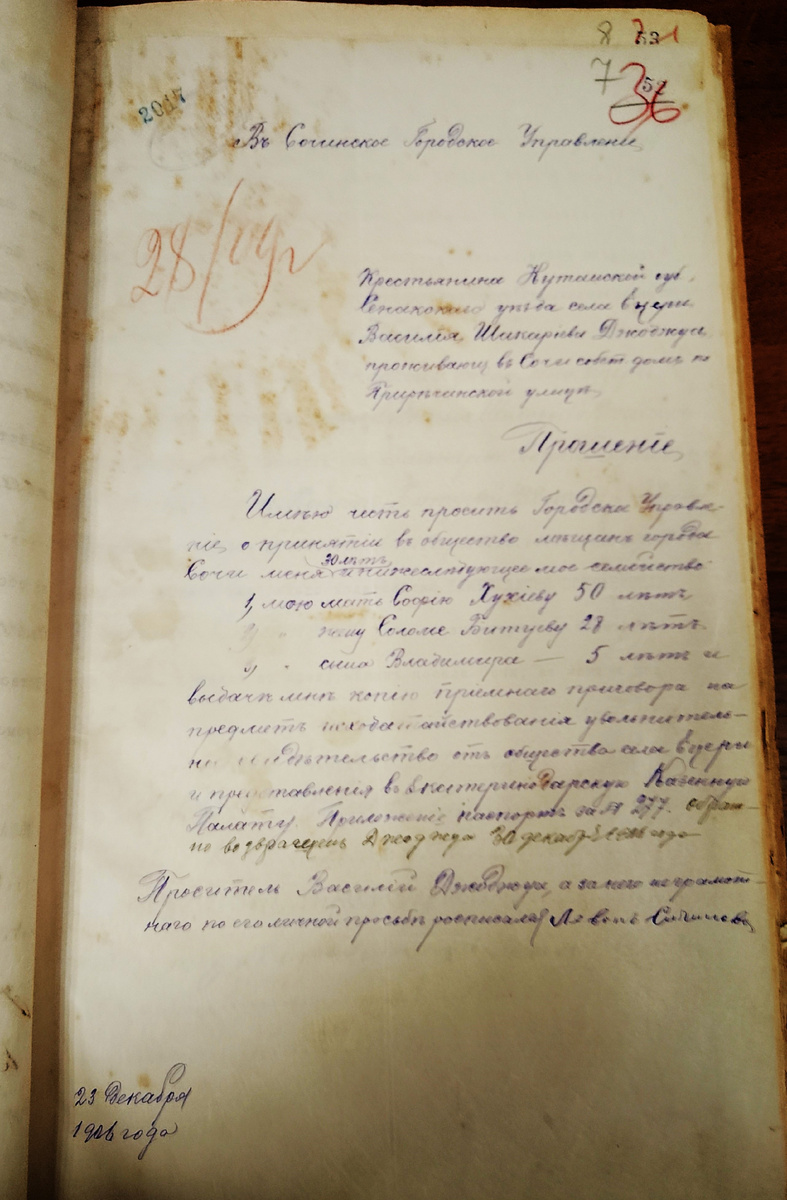 8 53
7 52
36
2017
Въ Сочинское Городское Управленіе
28/
Крестьянина Кутаиской губ.
Сенакскаго уѣзда села Ецери
Василія Шакаріева Джоджуа,
проживающ въ Сочи собст домъ по
улицѣ
Прошеніе
Имѣю честь просить Городское Управле-
ніе о принятіи въ общество мѣщанъ города
30 лѣтъ
Сочи меня и нижеслѣдующее мое семейство
1) мою мать Софію Хухіеву 50 лѣтъ
2) " жену Соломе Битуеву 28 лѣтъ
3) " сына Владимира — 5 лѣтъ и
выдачѣ мнѣ копію пріемнаго приговора на
предметъ исходатайствованія увольнитель-
но свидѣтельство отъ общества села Ецеры
и представленія въ Екатеринодарскую Казенную
Палату. Приложеніе паспортъ за № 277. обрат-
но Джоджуа 30 декабря года
Проситель Василій Джоджуа, а за него неграмот-
наго по его личной просьбѣ росписался
23 Декабря
1906 года